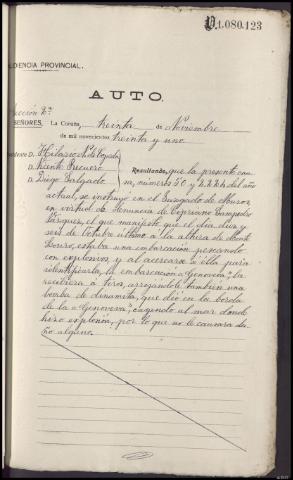 1.080.123
DIENCIA PROVINCIAL.
AUTO.
Sección 2ª
SEÑORES.
La Coruña, treinta de Noviembre
de mil novecientos treinta y uno.
D. Hilario
D. Vicente Pecuero
D. Diego Salgado
Resultando, que la presente cau
sa, números 50 y del año
actual, se instruyó en el Juzgado de Muros
en virtud de denuncia de Cipriano Campelo
Vázquez, el que manifestó que el día diez y
seis de Octubre último a la altura de Monte
Louro, estaba una embarcación pescando
con explosivos y al acercarse a ella para
identificarla, la embarcación "Genoveva", la
recibiera a tiros, arrojándole también una
bomba de dinamita, que dió en la borda
de la "Genoveva", cayendo al mar donde
hizo explosión, por lo que no le causara da
ño alguno.